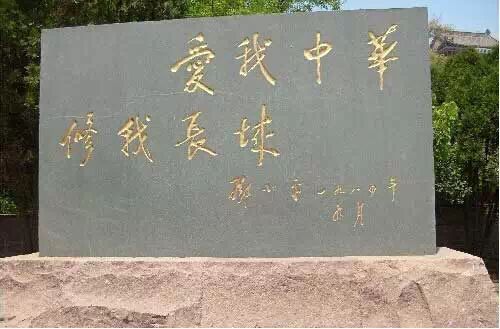 愛我中華
修我長城
鄧小平 一九八四年
九月